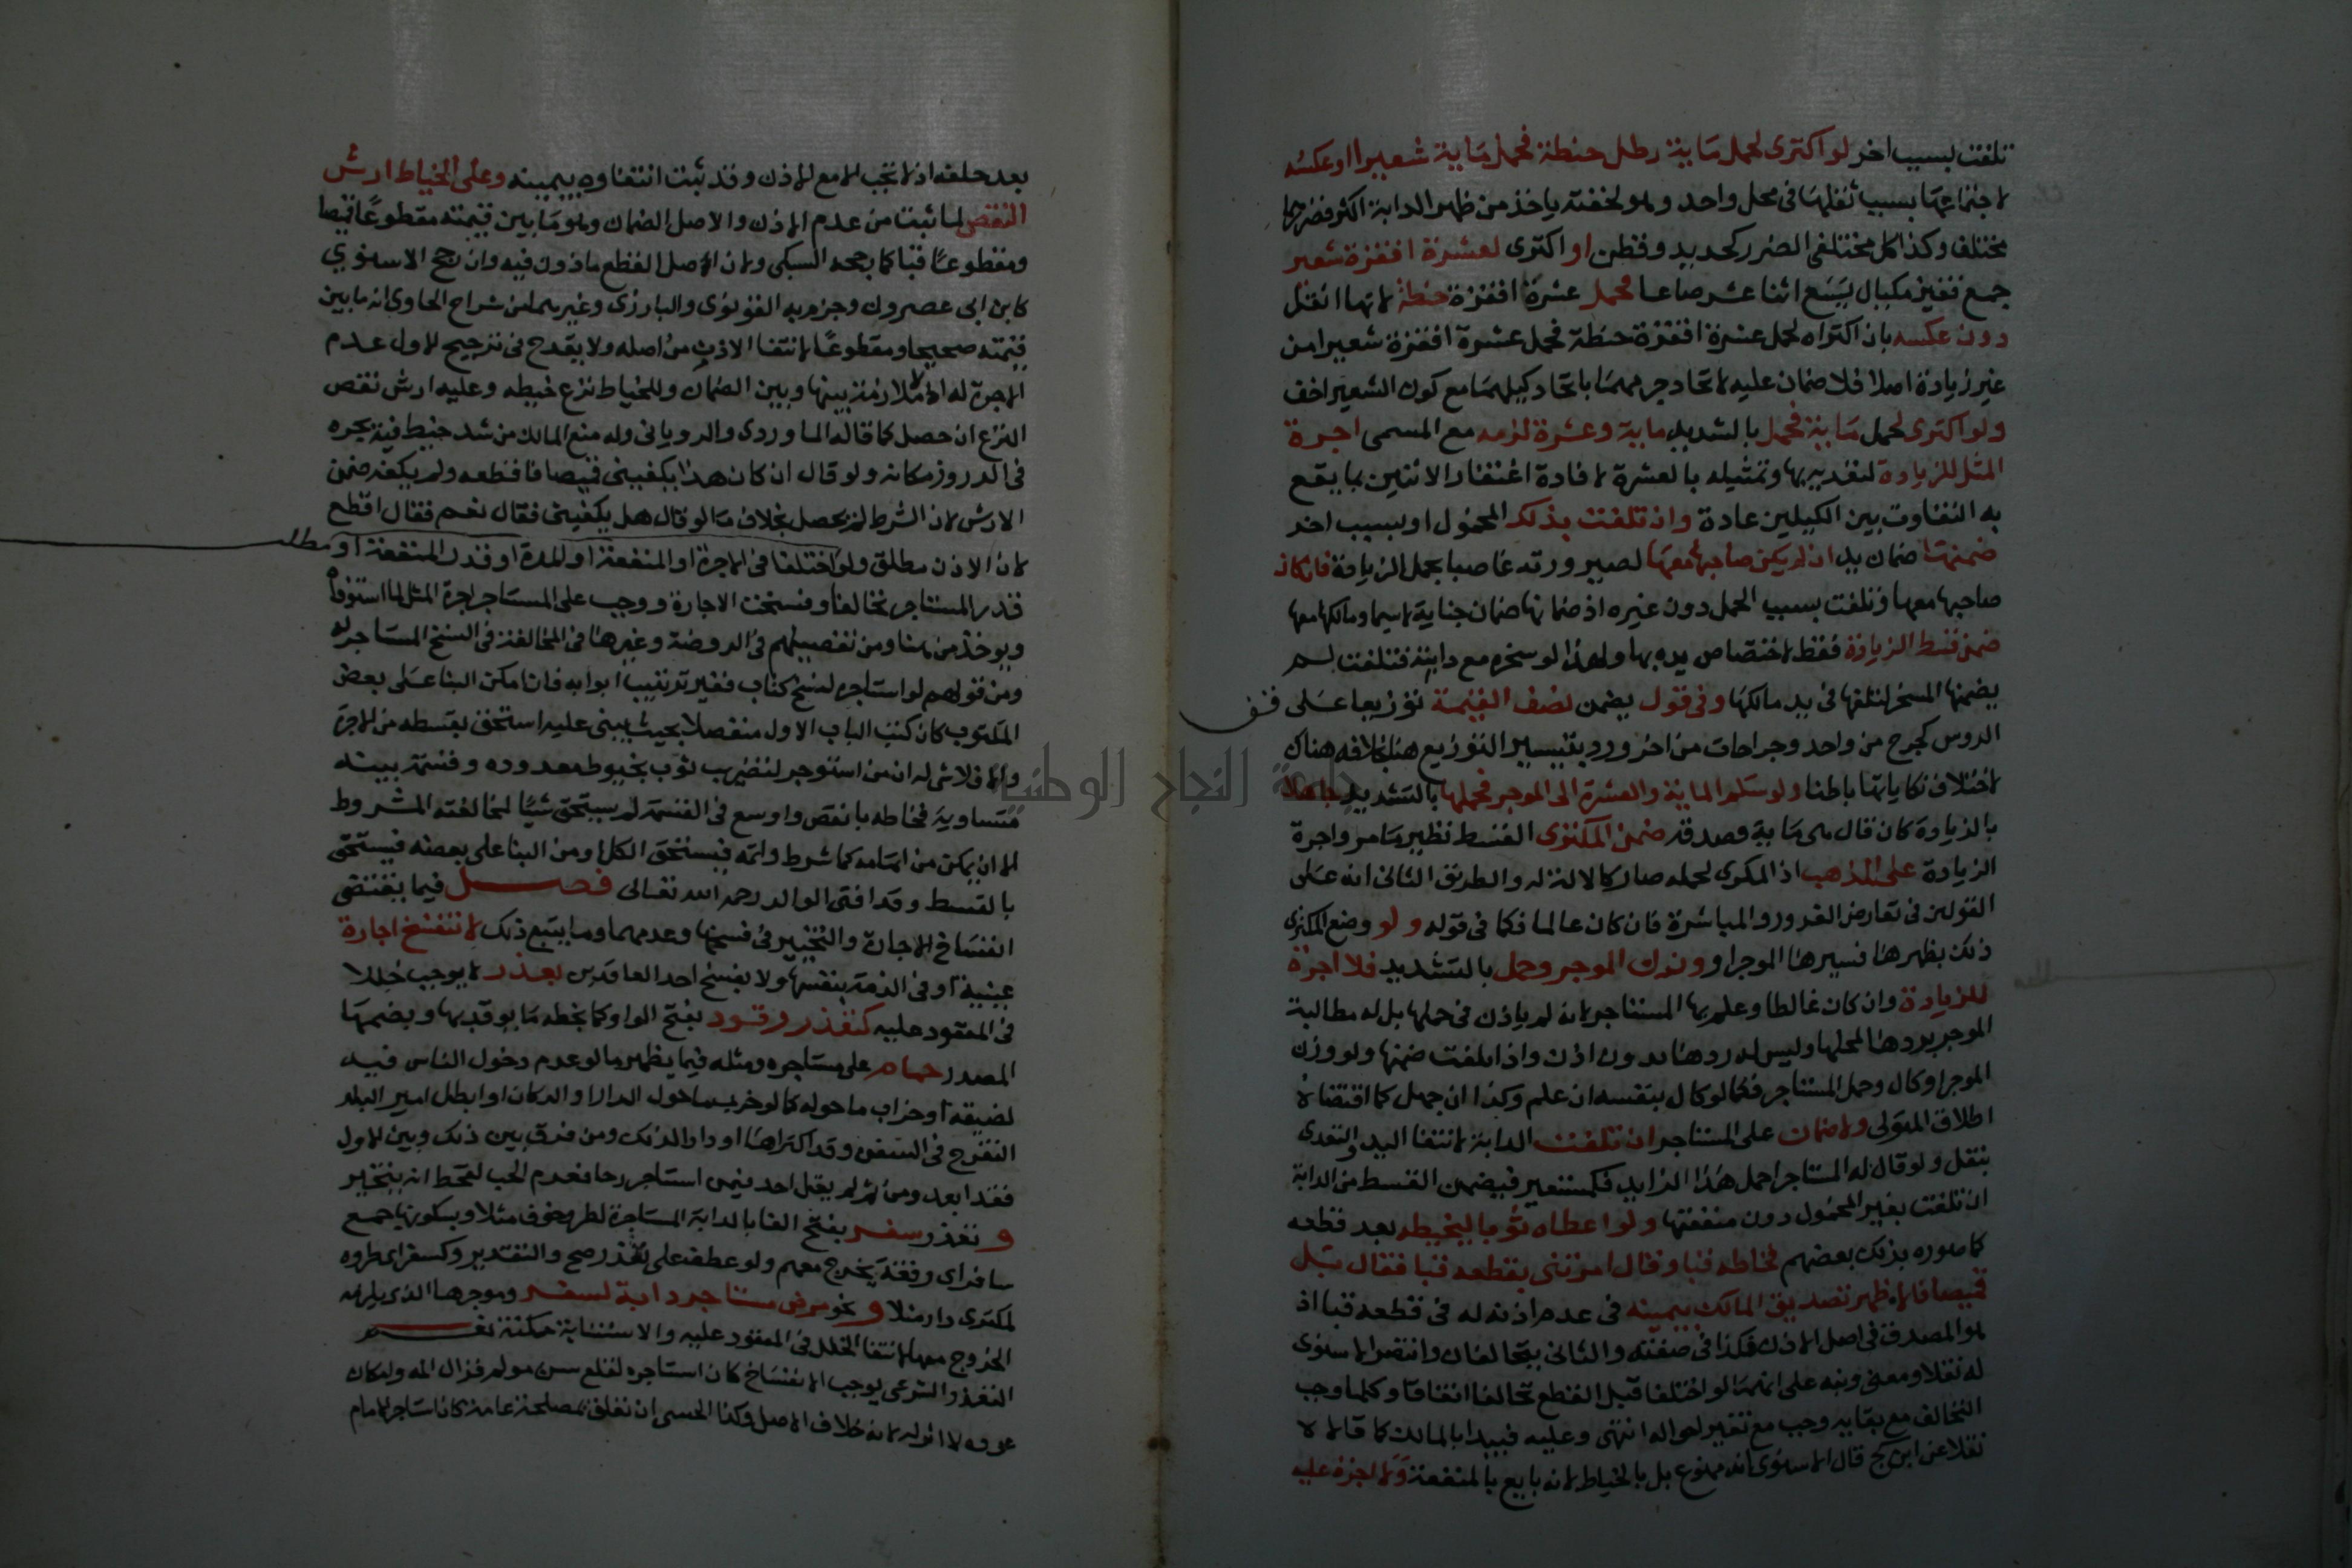 تلفت بسبب اخر لو اكترى لحمل ماية رطل حنطة فحمل ماية شعيرا او عكسه
لاجتماعها بسبب ثقلها فى محل واحد وهو لخفته ياخذ من ظهر الدابة اكثر فضررهما
مختلف وكذا كل مختلفى الضرر كحديد وقطن او اكترى لعشرة اقفزة شعير
جمع قفيز مكيال يسع اثنا عشر صاعا فحمل عشرة اقفزة حنطة لانها اثقل
دون عكسه بان اكتراه لحمل عشرة اقفزة حنطة فحمل عشرة اقفزة شعيرا من
غير زيادة اصلا فلا ضمان عليه لاتحاد جرمهما باتحاد كيلهما مع كون الشعير اخف
ولو اكترى لحمل ماية فحمل بالتشديد ماية وعشرة لزمه مع المسمى اجرة
المثل للزيادة لتعديه بها وتمثيله بالعشرة لافادة اغتفار الاثنين بما يقع
به التفاوت بين الكيلين عادة وان تلفت بذلك المحمول او بسبب اخر
ضمنها ضمان يد ان لم يكن صاحبها معها لصيرورته غاصبا بحمل الزيادة فان كان
صاحبها معها وتلفت بسبب الحمل دون غيره اذ ضمانها ضمان جناية لاسيما ومالكها معها
ضمن قسط الزيادة فقط لاختصاص يده بها ولهذا لو سخره مع دابته فتلفت لم
يضمنها المسخر لتلفها فى يد مالكها وفى قول يضمن نصف القيمة توزيعا على
الروس كجرح من واحد وجراحات من اخر ورد بتيسير التوزيع هنا بخلافه هناك
لاختلاف نكاياتها باطنا ولو سلم الماية والعشرة الى الموجر فحملها بالتشديد جاهلا
بالزيادة كان قال هى ماية فصدقه ضمن المكترى القسط نظير ما مر واجرة
الزيادة على المذهب اذ المكرى لحمله صار كالالة له والطريق الثانى انه على
القولين فى تعارض الغرور والمباشرة فان كان عالما فكما فى قوله ولو وضع المكترى
ذلك بظهرها فسيرها الموجر او ونزل الموجر وحمل بالتشديد فلا اجرة
للزيادة وان كان غالطا وعلم بها المستاجر لانه لم ياذن فى حملها بل له مطالبة
الموجر بردها لمحلها وليس له ردها بدون اذن واذا تلفت ضمنها ولو وزن
الموجر او كال وحمل المستاجر فكما لو كال بنفسه ان علم وكذا ان جهل كما اقتضاه
اطلاق المتولى ولا ضمان على المستاجر ان تلفت الدابة لانتفا اليد والتعدى
بنقل ولو قال له المستاجر احمل هذا الزايد فكمستعير فيضمن القسط من الدابة
ان تلفت بغير المحمول دون منفعتها ولو اعطاه ثوبا ليخيطه بعد قطعه
كما صوره بذلك بعضهم فخاطه قبا وقال امرتنى بقطعه قبا فقال بل
قميصا فالاظهر تصديق المالك بيمينه فى عدم اذنه له فى قطعه قبا اذ
هو المصدق فى اصل الاذن فكذا فى صفته والثانى يتحالفان وانتصر الاسنوى
له نقلا ومعنى ونبه على انهما لو اختلفا قبل القطع تحالفا اتفاقا وكلما وجب
التحالف مع بقايه وجب مع تغير احواله انتهى وعليه فيبدا بالمالك كما قالا
نقلا عن ابن كج قال الاسنوى انه ممنوع بل بالخياط لانه بايع بالمنفعة ولا اجرة عليه
بعد حلفه اذ لا تجب الا مع الاذن وقد ثبت انتفاوه بيمينه وعلى الخياط ارش
النقص لما ثبت من عدم الاذن والاصل الضمان وهو ما بين قيمته مقطوعا قميصا
ومقطوعا قبا كما رجحه السبكى ولان الاصل القطع ماذون فيه وان رجح الاسنوى
كابن ابى عصرون وجزم به القونوى والبارزى وغيرهما من شراح الحاوى انه ما بين
قيمته صحيحا ومقطوعا لانتفا الاذن من اصله ولا يقدح فى ترجيح الاول عدم
الاجرة له اذ لا ملازمة بينها وبين الضمان وللخياط نزع خيطه وعليه ارش نقص
النزع ان حصل كما قاله الماوردى والرويانى وله منع المالك من شد خيط فيه يجره
فى الدروز مكانه ولو قال ان كان هذا يكفينى قميصا فاقطعه فقطعه ولم يكفه ضمن
الارش لان الشرط لم يحصل بخلاف ما لو قال هل يكفينى فقال نعم فقال اقطع
لان الاذن مطلق ولو اختلفا فى الاجرة او المنفعة او المدة او قدر المنفعة او
مطلب
قدر المستاجر تحالفا وفسخت الاجارة ووجب على المستاجر اجرة المثل لما استوفاه
ويوخذ من هنا ومن تفصيلهم فى الروضة وغيرها فى المخالفة فى النسخ المستاجر له
ومن قولهم لو استاجره لنسخ كتاب فغير ترتيب ابوابه فان امكن البنا على بعض
المكتوب كان كتب الباب الاول منفصلا بحيث يبنى عليه استحق بقسطه من الاجرة
والا فلا شى له ان من استوجر لتضريب ثوب بخيوط معدودة وقسمة بينه
متساوية فخاطه بانقص واوسع فى القسمة لم يستحق شيا لمخالفته المشروط
الا ان يمكن من اتمامه كما شرط واتمه فيستحق الكل او من البنا على بعضه فيستحق
بالقسط وقد افتى الوالد رحمه الله تعالى فصل فيما يقتضى
انفساخ الاجارة والتخيير فى فسخها وعدمهما وما يتبع ذلك لا تنفسخ اجارة
عينية او فى الذمة بنفسها ولا بفسخ احد العاقدين بعذر لا يوجب خللا
فى المعقود عليه كتعذر وقود بفتح الواو كما بخطه ما يوقد بها وبضمها
المصدر حمام على مستاجره ومثله فيما يظهر ما لو عدم دخول الناس فيه
لضيقه او خراب ما حوله كما لو خرب ما حول الدار او الدكان او ابطل امير البلد
التفرج فى السفن وقد اكتراها او دار الذلك ومن فرق بين ذلك وبين الاول
فقد ابعد ومن ثم لم يقل احد فيمن استاجر رحا فعدم الحب لقحط انه يتخير
و تعذر سفر بفتح الفا بالدابة المستاجرة لطرو خوف مثلا وبسكونها جمع
سافر اى رفقة يخرج معهم ولو عطفه على تعذر صح والتقدير وكسفر اى طروه
لمكترى دار مثلا و نحو مرض مستاجر دابة لسفر وموجرها الذى يلزمه
الخروج معها لانتفا الخلل فى المعقود عليه والاستنابة ممكنة نعم
التعذر الشرعى يوجب الانفساخ كان استاجره لقلع سن مولم فزال المه وامكان
عوده لا اثر له لانه خلاف الاصل وكذا الحسى ان تعلق بمصلحة عامة كان استاجر الامام
جامعة النجاح الوطنية